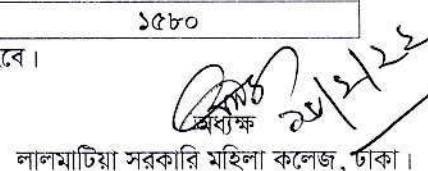 ১৫৮০
বে।
অধ্যক্ষ
লালমাটিয়া সরকারি মহিলা কলেজ, ঢাকা।